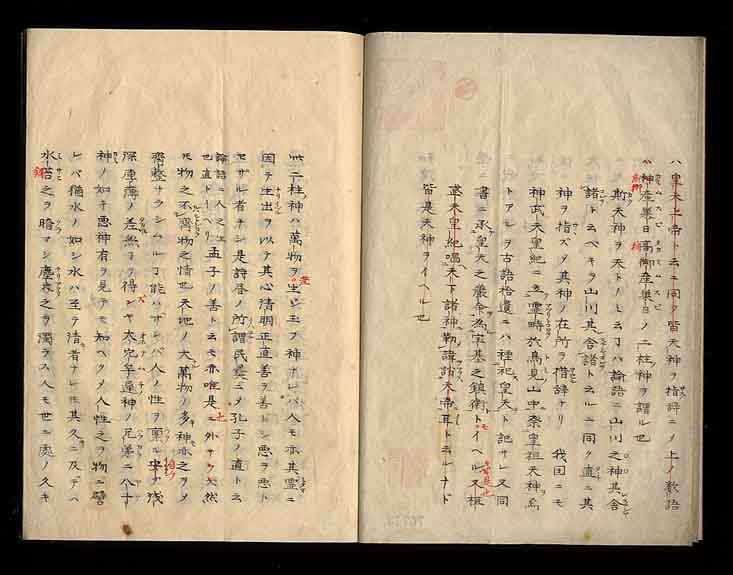 ハ皇天上帝ト云ニ同ク皆天神ヲ指辞ニメ上ノ数語
ハ神産巣日高御産巣日ノ二柱神ヲ謂ル也
斯天神ヲ天トノミ云フハ論語ニ山川之神其舎
諸ト云ベキヲ山川其舎諸ト云ルニ同ク直ニ其
神ヲ指ズメ其神ノ在所ヲ借辞ナリ 我国ニモ
神武天皇紀ニ立霊畤於鳥見山中祭皇祖天神焉
トアルヲ古語拾遺ニハ種祀皇天ト記サレ又同
書ニ承皇天之厳命為宇基之鎮衛トイヘル又推
天皇紀 天下諸神勒諱 天帝耳ト云ルナド
皆是天神ヲイヘル也
此二柱神ハ萬物ヲ生シ玉フ神ナレバ人モ亦其霊ニ
因テ生出ヲ以テ其心清明正直善ヲ善トシ悪ヲ悪ト
セザル者ナシ是詩書ノ所謂民彝ニメ孔子ノ直ト云
論語ニ人之生也直トイヘリ孟子ノ善ト云モ亦唯是ニ外ナラズ然
ルニ物之不齊物之情也天地ノ大萬物ノ多神亦之ヲメ
齊整ナラシムルフ能ハザレバ人ノ性ヲ稟ル
深厚薄ノ差無フヲ得ンヤ大穴牟遅神ノ兄弟ニ八十
神ノ如キ悪神有ヲ見テモ知ベクメ人性之ヲ物ニ譬
レバ猶水ノ如シ水ハ至テ清者ナレ其久ニ及デハ
水 之ヲ暗マシ塵 之ヲ濁ラス人モ世ニ處ノ久キ